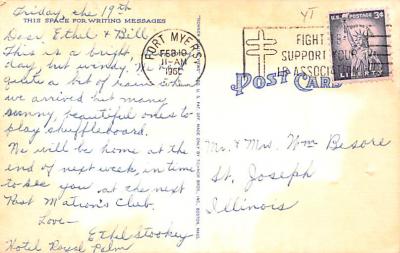 Friday, the 19th
THIS SPACE FOR WRITING MESSAGES
Dear Ethel & Bill,
This is a bright
day, but windy. We had
quite a bit of rain when
we arrived but many
sunny, beautiful ones to
play shuffleboard.
We will be home at the
end of next week, in time
to see you at the next
Past Matron's Club.
Love—
Ethel Stookey
Hotel Royal Palm
FORT MYERS
FEB 19
11-AM
FIGHT
SUPPORT YOUR
ASSOCIATION
3¢
LIBERTY
POST CARD
Mr. & Mrs. Wm Besore
St. Joseph
Illinois